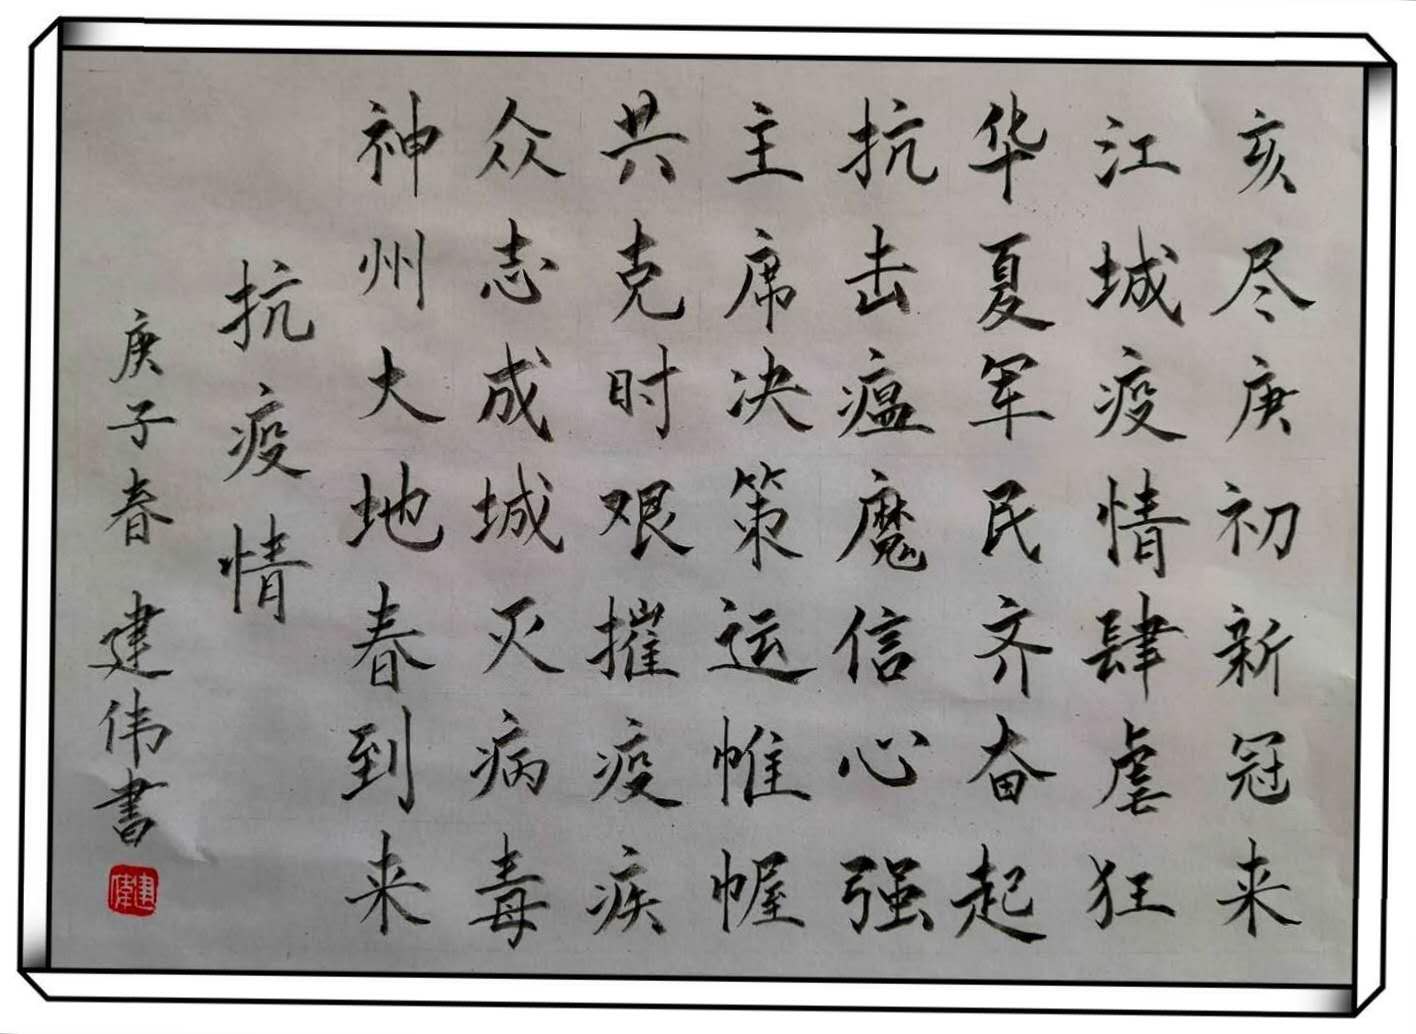 亥尽庚初新冠来
江城疫情肆虐狂
华夏军民齐奋起
抗击瘟魔信心强
主席决策运帷幄
共克时艰摧疫疾
众志成城灭病毒
神州大地春到来
抗疫情
庚子春 建伟書
建偉